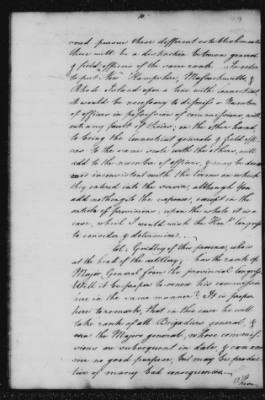 pursue these different establishments
there will be a distinction between general
& field officers of the same rank. In order
to put New Hampshire, Massachusetts &
Rhode Island upon a line with Connecticut,
it would be necessary to dismiss a number
of officers in possession of commissions, with
out any fault of theirs; on the other hand,
to bring the Connecticut generals & field offi
cers to the same scale with the others, will
add to the number of officers, & may be deem
ed inconsistent with the terms on which
they entered into the service, although you
add nothing to the expence, except in the
article of provisions; upon the whole it is a
case, which I would wish the Hon.ble Congress
to consider & determine.
Col. Gridley of this province, who is
at the head of the artillery, has the rank of
Major General from the provincial Congress.
Will it be proper to renew his commission
here in the same manner? It is proper
here to remark, that in this case he will
take rank of all Brigadiers general, &
even the Majors general, whose commis
sions are subsequent in date, & can ans
wer no good purpose, but may be produc
tive of many bad consequences.